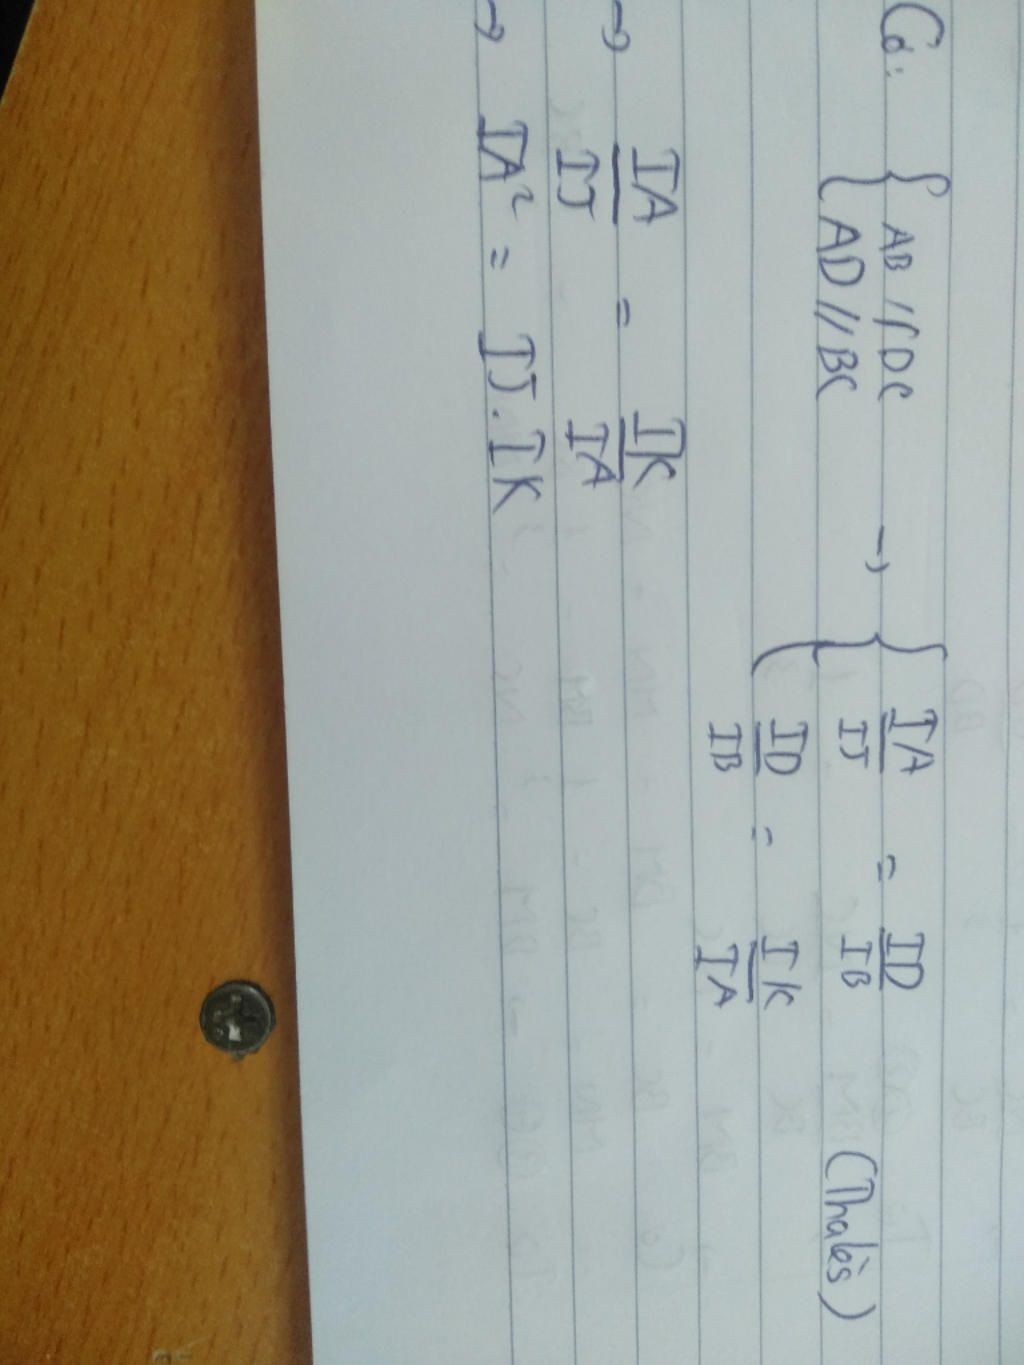 Có: { AB // DC
AD // BC → { IA/IJ = ID/IB
ID/IB = IK/IA (Thalès)
→ IA/IJ = IK/IA
→ IA² = IJ . IK